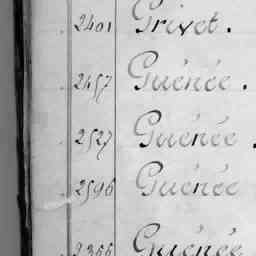 2401 Grivet.
2457 Guénée.
2527 Guénée.
2596 Guénée
2366 Guénée